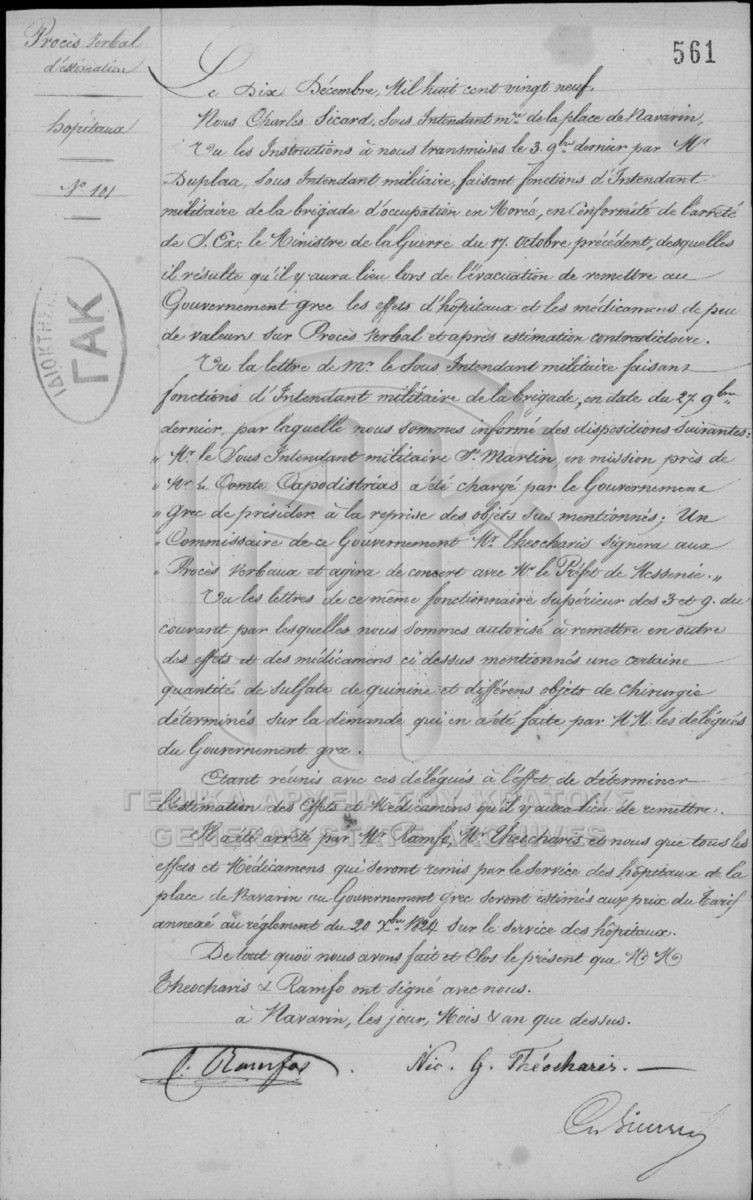 561
Procès Verbal
d'estimation
hôpitaux
Nº 101
ΙΔΙΟΚΤΗΣΙΑ
ΓΑΚ
Le Dix Décembre, Mil huit cent vingt neuf.
Nous Charles Sicard, Sous Intendant mre de la place de Navarin,
Vu les Instructions à nous transmises le 3. 9bre dernier par Mr
Duplaa, Sous Intendant militaire, faisant fonctions d'Intendant
militaire de la brigade d'occupation en Morée, en Conformité de l'arrêté
de S. Ex. le Ministre de la Guerre du 17. Octobre précédent, desquelles
il résulte qu'il y aura lieu lors de l'évacuation de remettre au
Gouvernement grec les effets d'hôpitaux et les médicamens de peu
de valeurs sur Procès Verbal et après estimation contradictoire.
Vu la lettre de Mr. le Sous Intendant militaire faisant
fonctions d'Intendant militaire de la brigade, en date du 27. 9bre
dernier, par laquelle nous sommes informé des dispositions suivantes:
" Mr. le Sous Intendant militaire St. Martin, en mission près de
" Mr. le Comte Capodistrias a été chargé par le Gouvernement
" Grec de présider à la reprise des objets sus mentionnés; Un
" Commissaire de ce Gouvernement Mr. Theocharis signera aux
" Procès Verbaux et agira de concert avec Mr. le Préfet de Messenie. "
Vu les lettres de ce même fonctionnaire supérieur des 3 et 9. du
courant par lesquelles nous sommes autorisé à remettre en outre
des effets et des médicamens ci dessus mentionnés une certaine
quantité de sulfate de quinine et différens objets de chirurgie
déterminés sur la demande qui en a été faite par M.M. les délégués
du Gouvernement grec.
Etant réunis avec ces délégués à l'effet de déterminer
l'estimation des Effets et Médicamens qu'il y aura lieu de remettre.
ΓΕΝΙΚΑ ΑΡΧΕΙΑ ΤΟΥ ΚΡΑΤΟΥΣ
GENERAL STATE ARCHIVES
Il a été arrêté par Mr. Ramfo, Mr. Theocharis et nous que tous les
effets et Médicamens qui seront remis par le service des hôpitaux de la
place de Navarin au Gouvernement Grec seront estimés aux prix du Tarif
annexé au règlement du 20 Xbre 1824 sur le service des hôpitaux.
De tout quoi nous avons fait et Clos le présent que M. M.
Theocharis & Ramfo ont signé avec nous.
à Navarin, les jour, Mois & an que dessus.
Ramfos
Nic. G. Théocharis.